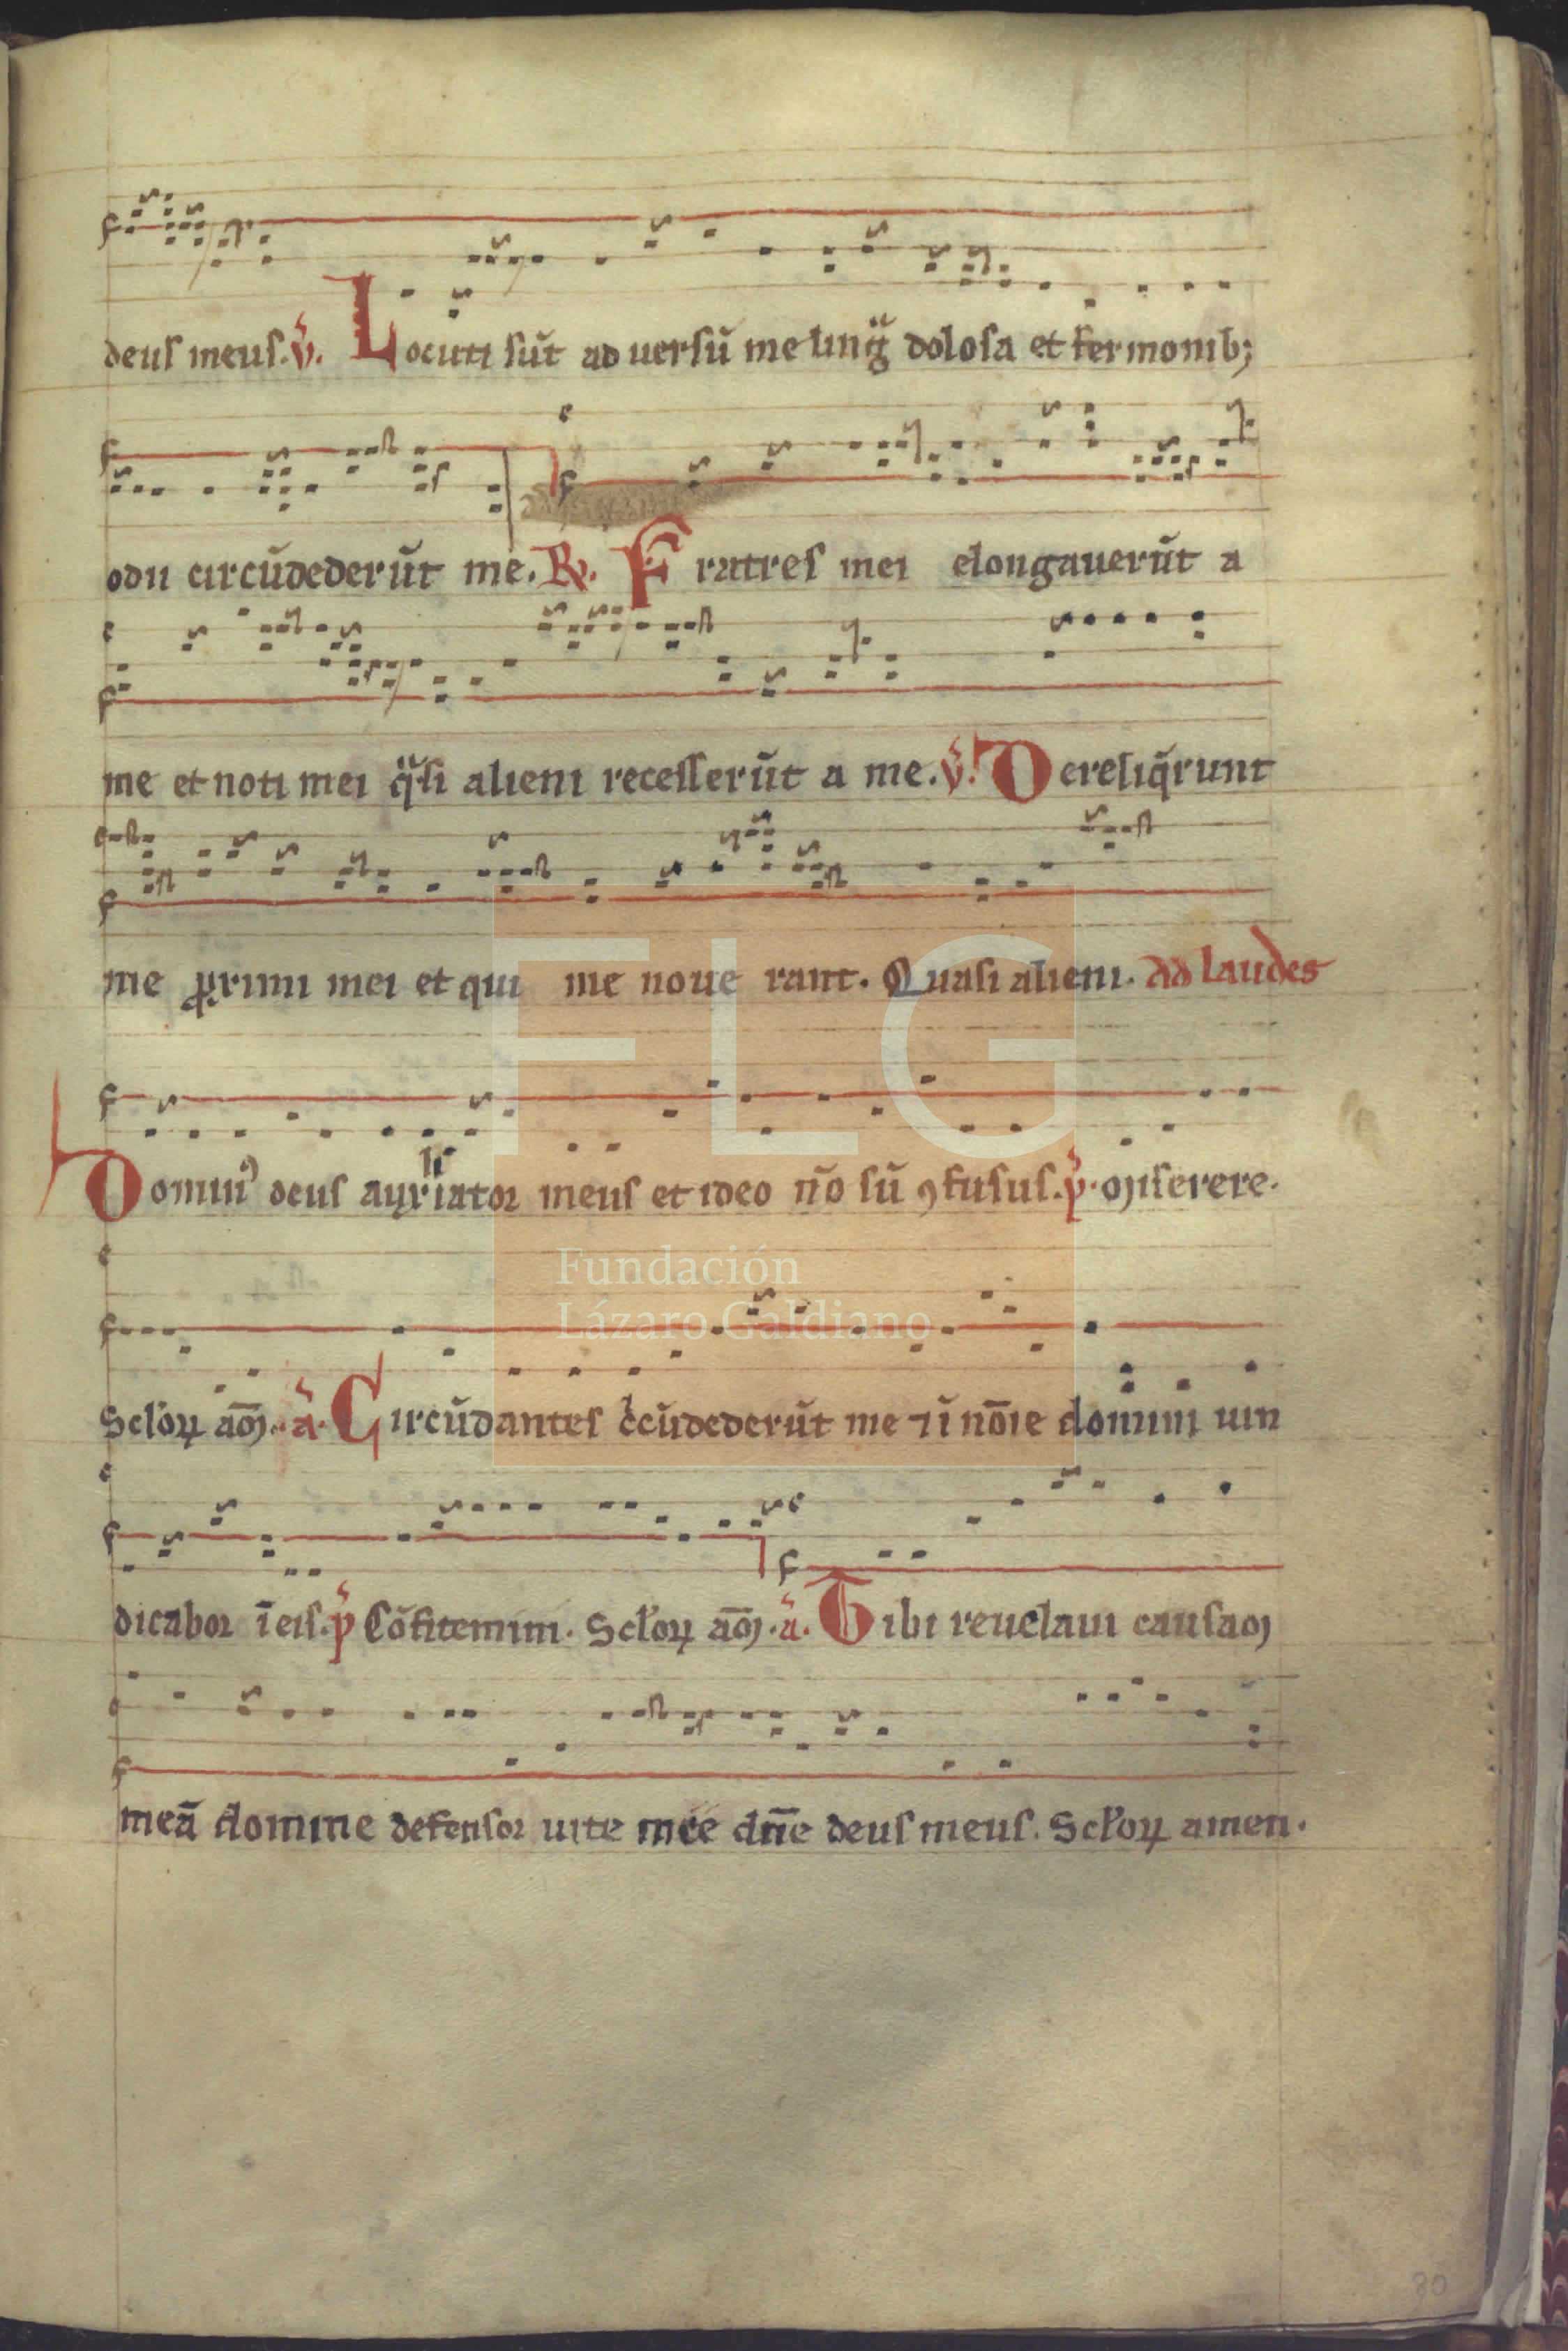 deus meus. v̄. Locuti sūt ad uersū me lingᷓ dolosa et sermonib;
odii circūdederūt me. R. Fratres mei elongauerūt a
me et noti mei qᷓsi alieni recesserūt a me. v̄. Dereliq̄runt
me ꝓximi mei et qui me noue rant. Quasi alieni. Ad laudes
Dominꝰ deus auxiliator meus et ideo nō sū ꝯfusus. p̄. Miserere.
Scl̓oꝝ am̄. ā. Circūdantes c̓cūdederūt me ⁊ ī nōie domini uin
dicabor ī eis. p̄ Cōfitemini. Scl̓oꝝ am̄. ā. Tibi reuelaui causam
meā domine defensor uite mee dn̄e deus meus. Scl̓oꝝ amen.
FLG
Fundación
Lázaro Galdiano